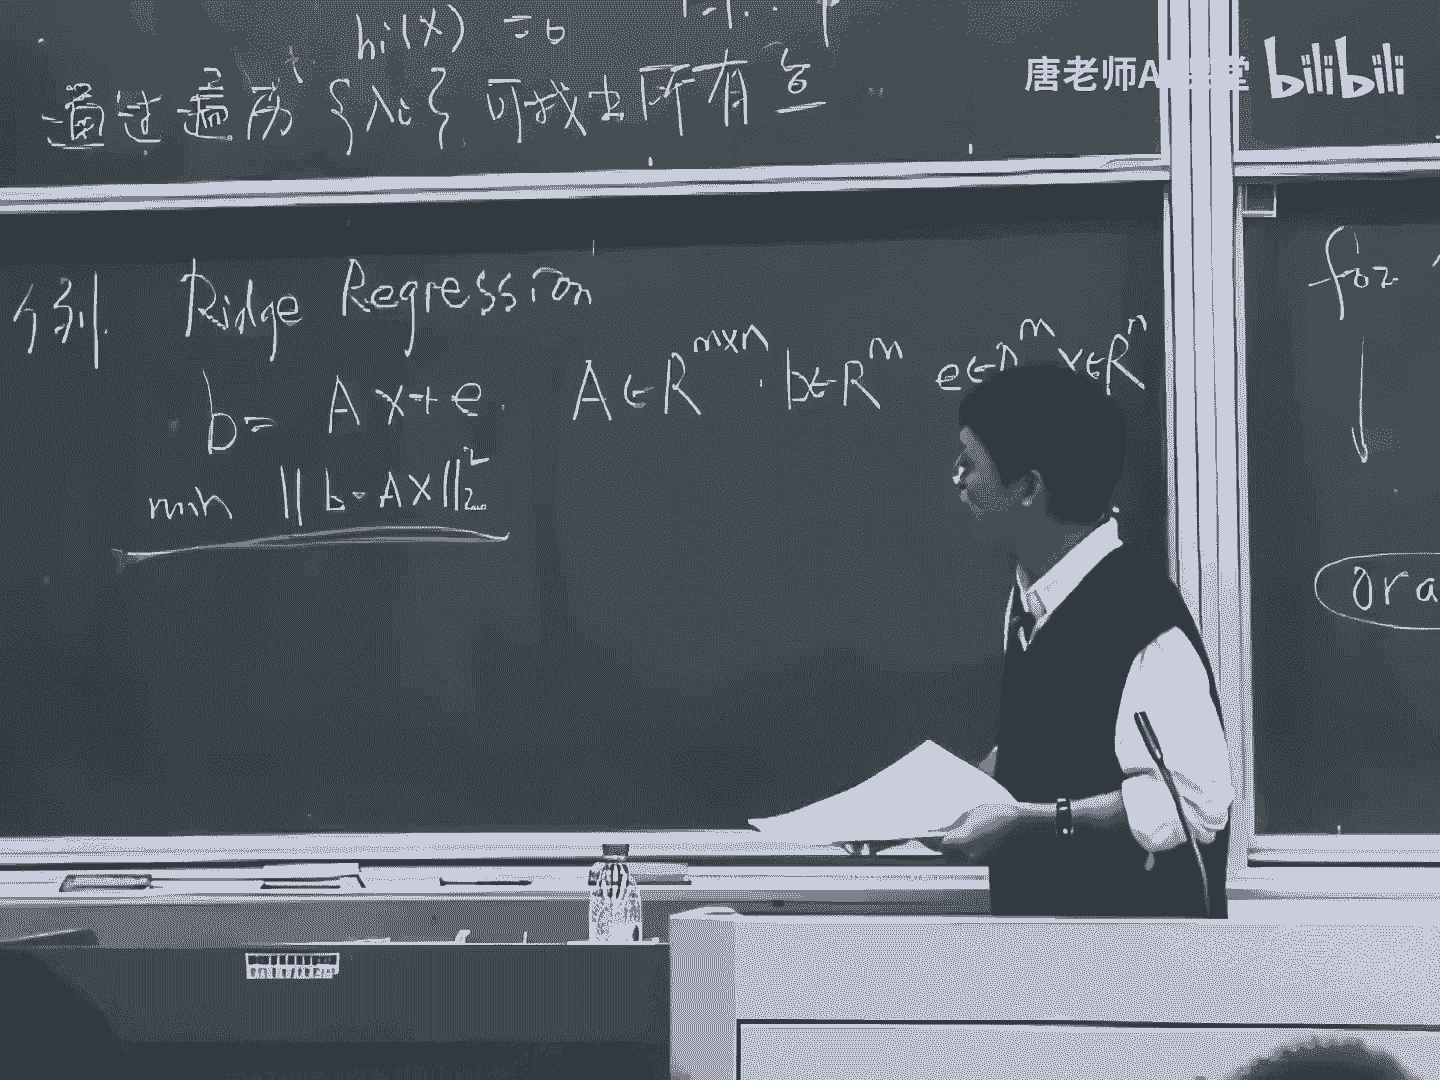 hi(x) = 0
通过遍历 {λi} 可找出所有
唐老师A 堂 bilibili
例. Ridge Regression
b = Ax + e. A ∈ R^{m×n}. b ∈ R^m e ∈ R^m x ∈ R^n
min || b - Ax ||_2^2
for
ora